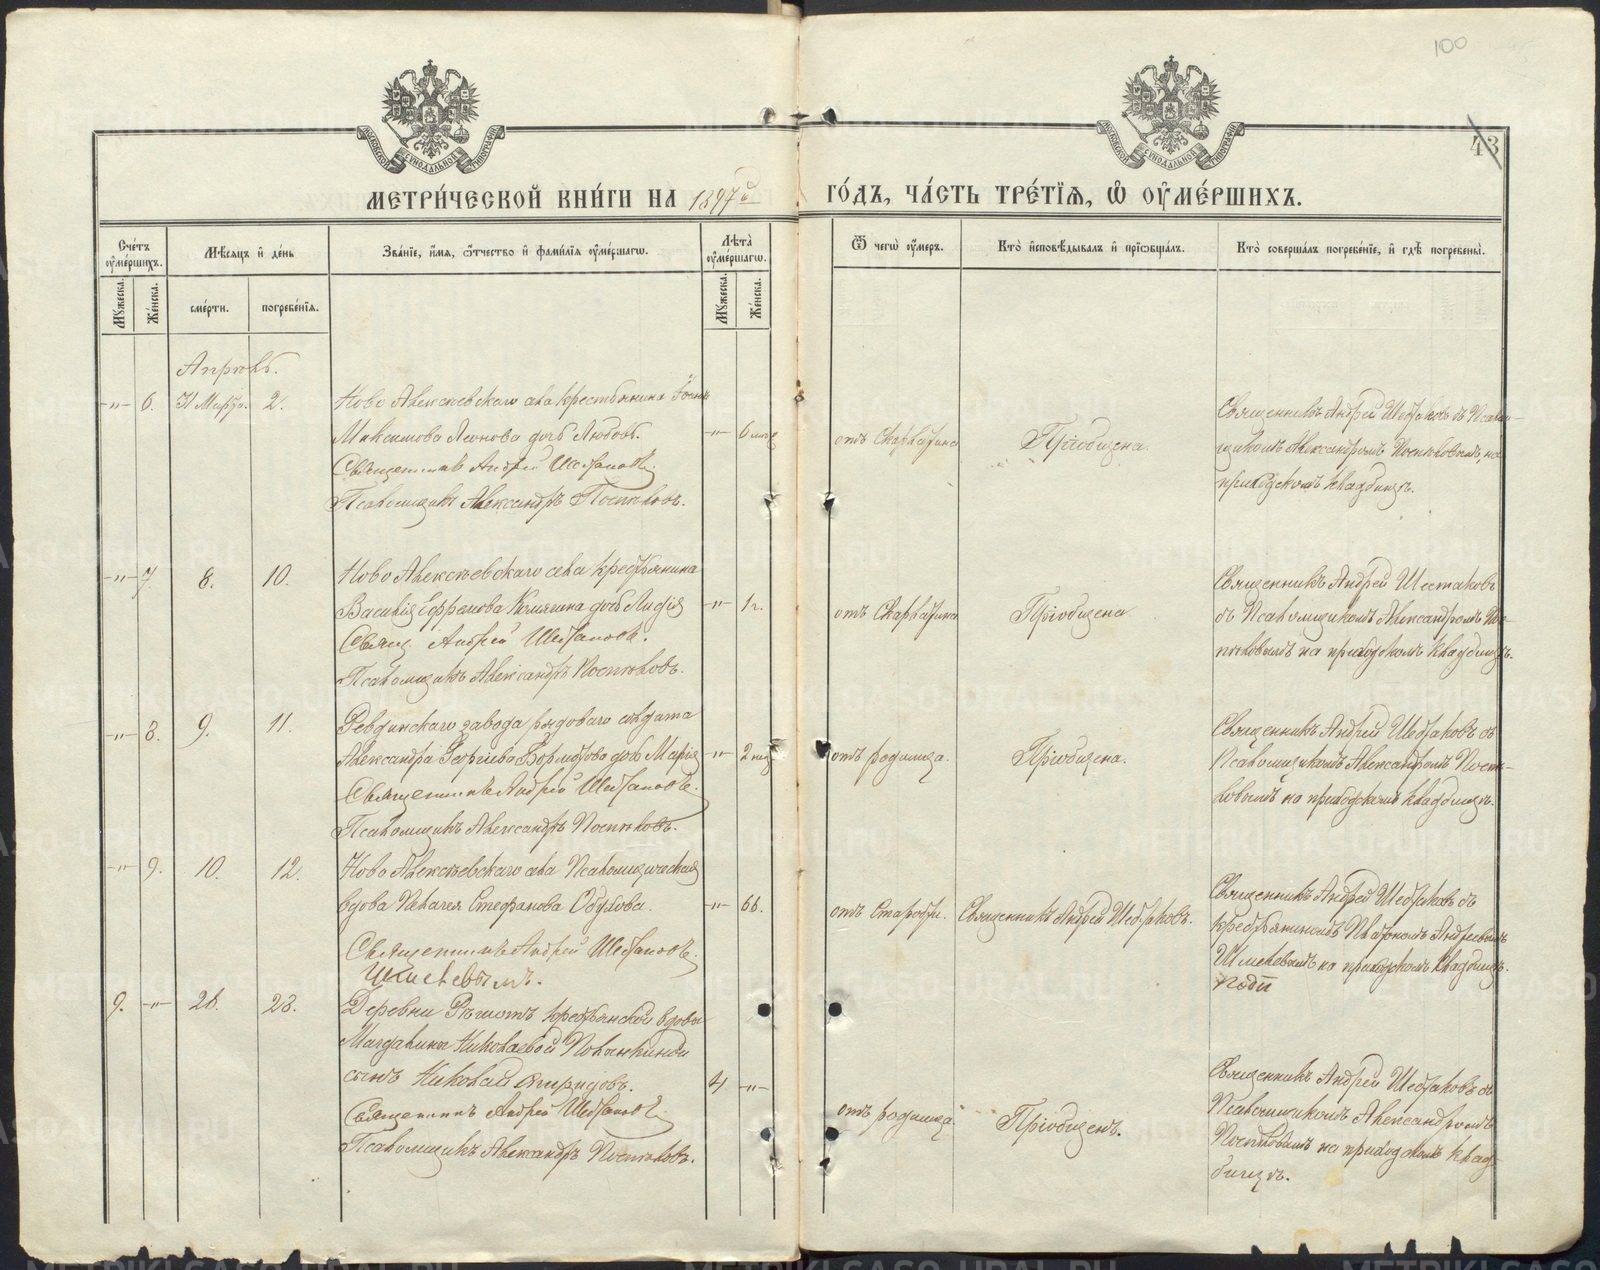 100
43
МОСКОВСКОЙ СѴНОДАЛЬНОЙ ТИПОГРАФІИ
МОСКОВСКОЙ СѴНОДАЛЬНОЙ ТИПОГРАФІИ
МЕТРИ́ЧЕСКОЙ КНИ́ГИ НА 1897й ГО́ДЪ, ЧА́СТЬ ТРЕ́ТІѦ, Ѡ ОУ҆МЕ́РШИХЪ.
Счетъ оу҆ме́ршихъ.
Мѣсяцъ и҆ де́нь
Зва́ніе, и҆́мя, ѻ҆́тчество и҆ фами́лія оу҆ме́ршагѡ.
Лѣта̀ оу҆ме́ршагѡ.
Ѿ чегѡ̀ оу҆́меръ.
Кто̀ и҆сповѣ́дывалъ и҆ прїѡбща́лъ.
Кто̀ соверша́лъ погребе́ніе, и҆ гдѣ̀ погребены̀.
Мꙋ́жеска.
Же́нска.
сме́рти.
погребе́нія.
Мꙋ́жеска.
Же́нска.
Апрѣль.
-"- 6. 31 Марта. 2. Ново Алексѣевскаго села крестьянина
Максимова Леонова дочь Любовь.
-"- 6
Священникъ Андрей Шестаковъ.
Псаломщикъ Александръ Поспѣловъ.
отъ Скарлатины
Пріобщена.
Священникъ Андрей Шестаковъ съ Псалом-
щикомъ Александромъ Поспѣловымъ, на
приходскомъ кладбищѣ.
-"- 7. 8. 10. Ново Алексѣевскаго села крестьянина
Василія Ефремова дочь Лидія
-"- 1 г.
Свящ. Андрей Шестаковъ.
Псаломщикъ Александръ Поспѣловъ.
отъ Скарлатины
Пріобщена
Священникъ Андрей Шестаковъ
съ Псаломщикомъ Александромъ Пос-
пѣловымъ на приходскомъ кладбищѣ.
-"- 8. 9. 11. Ревдинскаго завода рядоваго солдата
Александра Георгіева дочь Марія
-"- 2 нед
Священникъ Андрей Шестаковъ.
Псаломщикъ Александръ Поспѣловъ.
отъ родимца.
Пріобщена.
Священникъ Андрей Шестаковъ съ
Псаломщикомъ Александромъ Поспѣ-
ловымъ на приходскомъ кладбищѣ.
-"- 9. 10. 12. Ново Алексѣевскаго села Псаломщическая
вдова Пелагея Стефанова
-"- 66.
Священникъ Андрей Шестаковъ.
отъ Старости.
Священникъ Андрей Шестаковъ.
Священникъ Андрей Шестаковъ съ
крестьяниномъ Платономъ Андреевымъ
на приходскомъ кладбищѣ.
9. -"- 21. 23. Деревни Рѣшотъ крестьянской вдовы
Магдалины Николаевой
сынъ Николай Спиридовъ.
4 -"-
Священникъ Андрей Шестаковъ.
Псаломщикъ Александръ Поспѣловъ.
отъ родимца.
Пріобщенъ.
Священникъ Андрей Шестаковъ съ
Псаломщикомъ Александромъ
Поспѣловымъ на приходскомъ клад-
бищѣ.